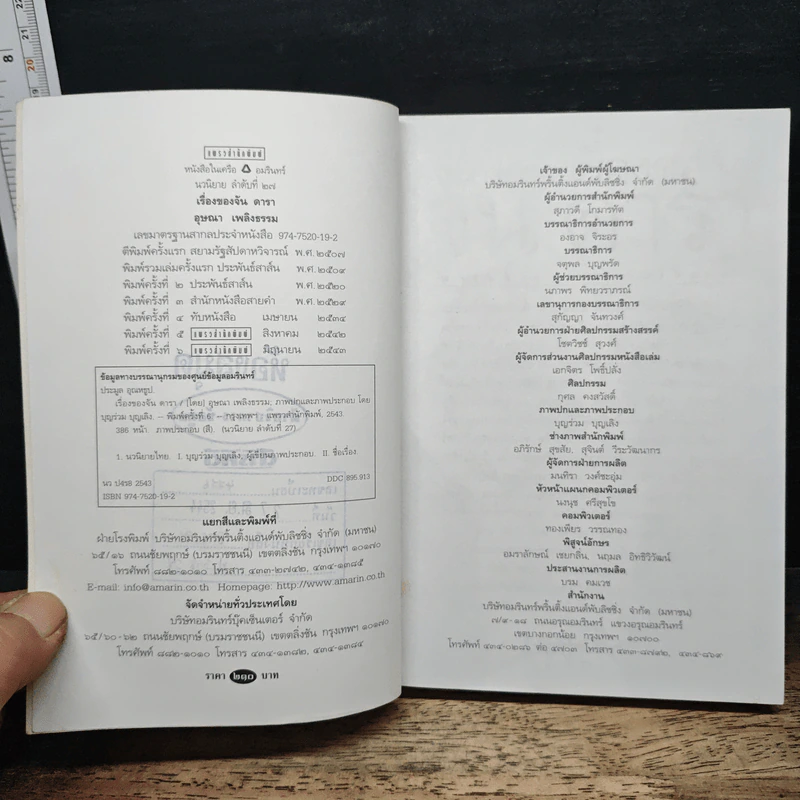 แพรวสำนักพิมพ์
หนังสือในเครือ อมรินทร์
นวนิยาย ลำดับที่ ๒๗
เรื่องของจัน ดารา
อุษณา เพลิงธรรม
เลขมาตรฐานสากลประจำหนังสือ 974-7520-19-2
ตีพิมพ์ครั้งแรก สยามรัฐสัปดาหวิจารณ์ พ.ศ.๒๕๐๗
พิมพ์รวมเล่มครั้งแรก ประพันธ์สาส์น พ.ศ.๒๕๐๙
พิมพ์ครั้งที่ ๒ ประพันธ์สาส์น พ.ศ.๒๕๒๐
พิมพ์ครั้งที่ ๓ สำนักหนังสือสายคำ พ.ศ.๒๕๒๙
พิมพ์ครั้งที่ ๔ ทับหนังสือ เมษายน ๒๕๓๘
พิมพ์ครั้งที่ ๕ แพรวสำนักพิมพ์ สิงหาคม ๒๕๔๒
พิมพ์ครั้งที่ ๖ แพรวสำนักพิมพ์ มิถุนายน ๒๕๔๓
ข้อมูลทางบรรณานุกรมของศูนย์ข้อมูลอมรินทร์
ประมูล อุณหธูป.
เรื่องของจัน ดารา / [โดย] อุษณา เพลิงธรรม; ภาพปกและภาพประกอบ โดย
บุญร่วม บุญเลิง. — พิมพ์ครั้งที่ 6 — กรุงเทพฯ : แพรวสำนักพิมพ์, 2543.
386 หน้า. ภาพประกอบ (สี). (นวนิยาย ลำดับที่ 27)
1. นวนิยายไทย. I. บุญร่วม บุญเลิง, ผู้เขียนภาพประกอบ. II. ชื่อเรื่อง.
นว ป458 2543 DDC 895.913
ISBN 974-7520-19-2
แยกสีและพิมพ์ที่
ฝ่ายโรงพิมพ์ บริษัทอมรินทร์พริ้นติ้งแอนด์พับลิชชิ่ง จำกัด (มหาชน)
๖๕/๑๖ ถนนชัยพฤกษ์ (บรมราชชนนี) เขตตลิ่งชัน กรุงเทพฯ ๑๐๑๗๐
โทรศัพท์ ๘๘๒-๑๐๑๐ โทรสาร ๔๓๓-๒๗๔๒, ๔๓๔-๑๓๘๕
E-mail: info@amarin.co.th Homepage: http://www.amarin.co.th
จัดจำหน่ายทั่วประเทศโดย
บริษัทอมรินทร์บุ๊คเซ็นเตอร์ จำกัด
๖๕/๖๐-๖๒ ถนนชัยพฤกษ์ (บรมราชชนนี) เขตตลิ่งชัน กรุงเทพฯ ๑๐๑๗๐
โทรศัพท์ ๘๘๒-๑๐๑๐ โทรสาร ๔๓๔-๑๓๘๒, ๔๓๔-๑๓๘๔
ราคา ๒๑๐ บาท
เจ้าของ ผู้พิมพ์ผู้โฆษณา
บริษัทอมรินทร์พริ้นติ้งแอนด์พับลิชชิ่ง จำกัด (มหาชน)
ผู้อำนวยการสำนักพิมพ์
สุภาวดี โกมารทัต
บรรณาธิการอำนวยการ
องอาจ จิระอร
บรรณาธิการ
จตุพล บุญพรัด
ผู้ช่วยบรรณาธิการ
นภาพร พิทยวราภรณ์
เลขานุการกองบรรณาธิการ
สุกัญญา จันทวงศ์
ผู้อำนวยการฝ่ายศิลปกรรมสร้างสรรค์
โชควิชช์ สุวงศ์
ผู้จัดการส่วนงานศิลปกรรมหนังสือเล่ม
เอกจิตร โพธิ์ปลั่ง
ศิลปกรรม
กุศล คงสวัสดิ์
ภาพปกและภาพประกอบ
บุญร่วม บุญเลิง
ช่างภาพสำนักพิมพ์
อภิรักษ์ สุขสัย, สุจินต์ วีระวัฒนากร
ผู้จัดการฝ่ายการผลิต
มนทิรา วงศ์ชะอุ่ม
หัวหน้าแผนกคอมพิวเตอร์
นงนุช ศรีสุขโข
คอมพิวเตอร์
ทองเพียร วรรณทอง
พิสูจน์อักษร
อมราลักษณ์ เชยกลิ่น, นฤมล อิทธิวิวัฒน์
ประสานงานการผลิต
บรม คมเวช
สำนักงาน
บริษัทอมรินทร์พริ้นติ้งแอนด์พับลิชชิ่ง จำกัด (มหาชน)
๗/๙-๑๘ ถนนอรุณอมรินทร์ แขวงอรุณอมรินทร์
เขตบางกอกน้อย กรุงเทพฯ ๑๐๗๐๐
โทรศัพท์ ๔๓๔-๐๒๘๖ ต่อ ๔๗๐๓ โทรสาร ๔๓๓-๘๗๙๒, ๔๓๔-๘๖๙